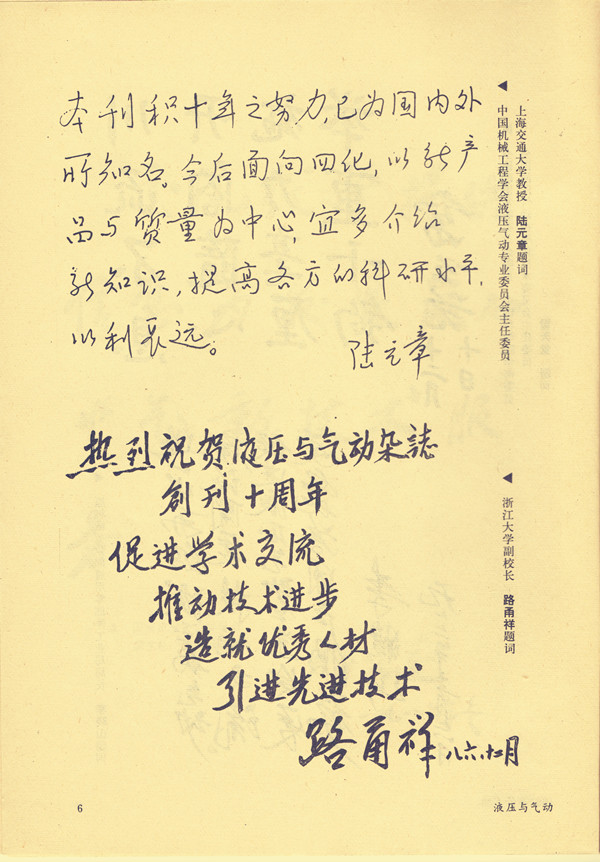 本刊积十年之努力,已为国内外
所知名。今后面向四化,以新产
品与质量为中心,宜多介绍
新知识,提高各方的科研水平,
以利长远。
陆元章
上海交通大学教授 陆元章题词
中国机械工程学会液压气动专业委员会主任委员
热烈祝贺液压与气动杂誌
創刊十周年
促进学术交流
推动技术进步
造就优秀人材
引进先进技术
路甬祥 八六.十二月
浙江大学副校长 路甬祥题词
6
液压与气动